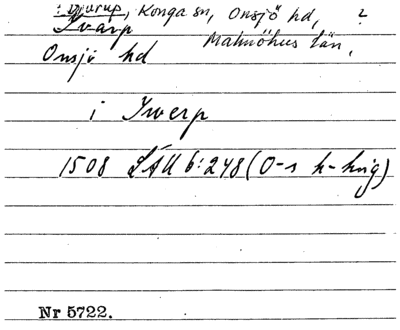 : Djurup, Konga sn, Onsjö hd, ?
Ivarp Malmöhus län,
Onsjö hd
i Iwerp
1508 LÄU 6:248 (O-s h-hvg)
Nr 5722.